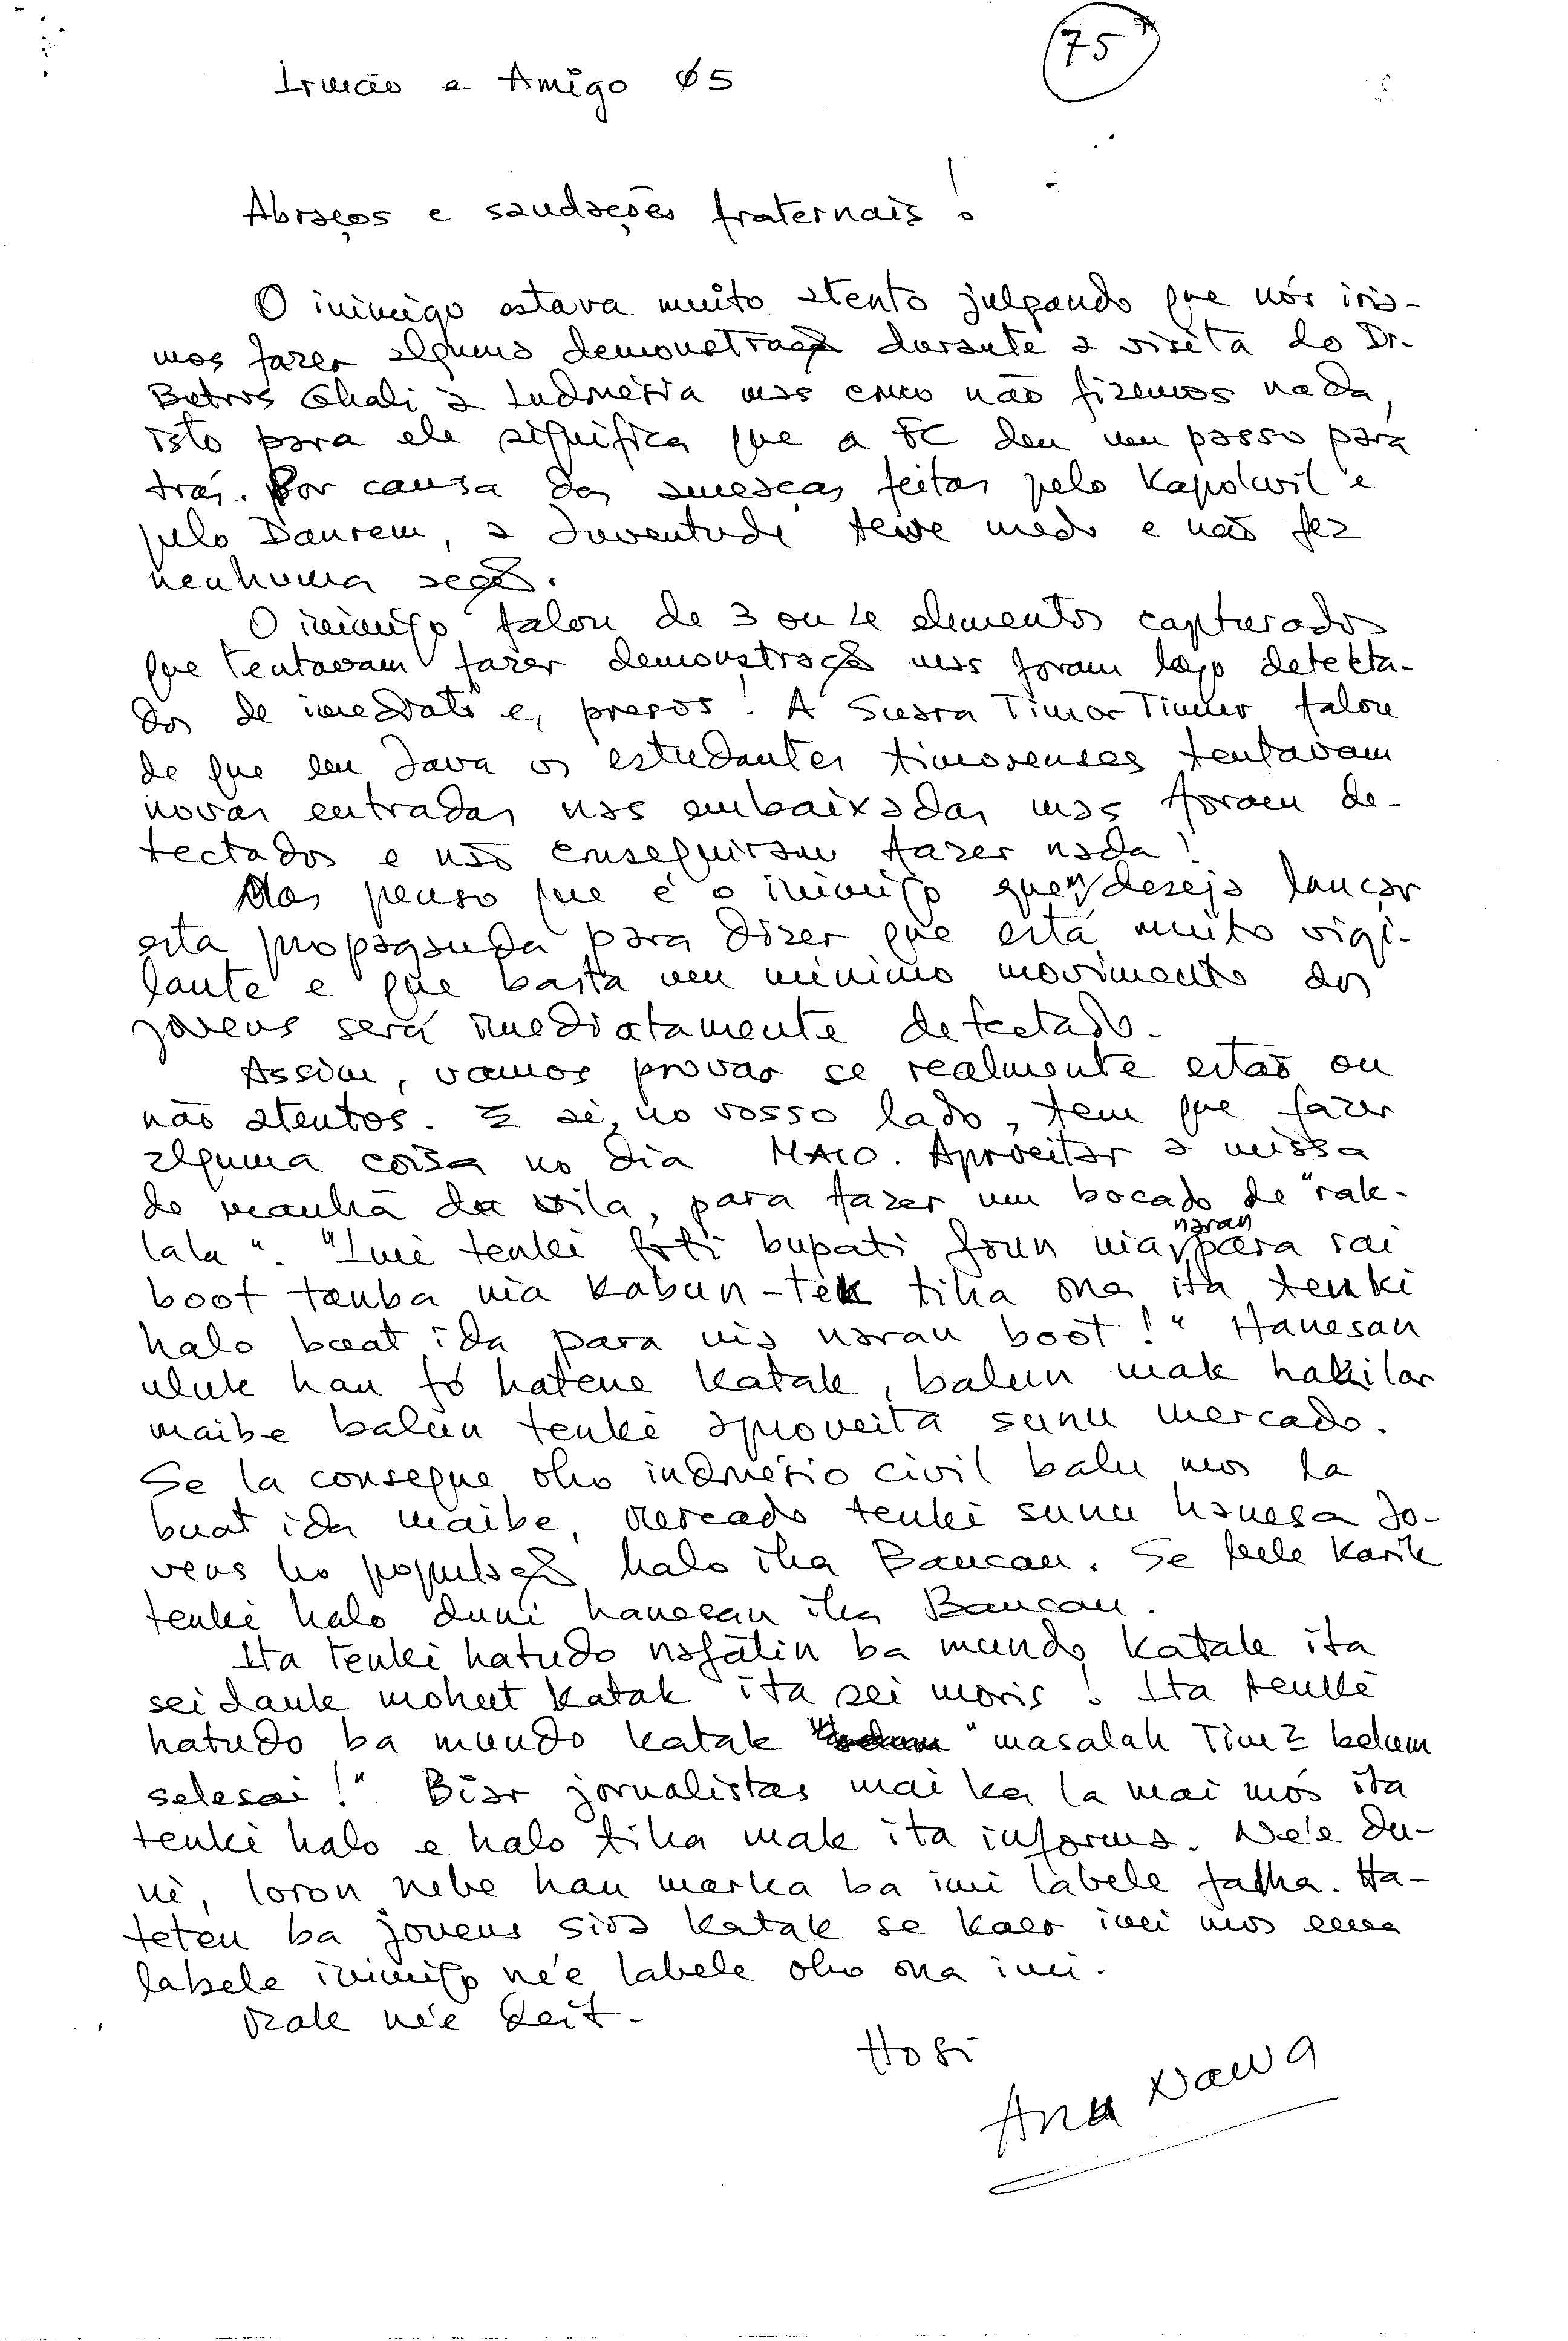 75
Irmão e Amigo Ø5
Abraços e saudações fraternais !
O inimigo estava muito atento julgando que nós iría-
mos fazer alguma demonstração durante a visita do Dr.
Butros Ghali à Indonésia mas como não fizemos nada,
isto para ele significa que a FC deu um passo para
trás. Por causa das ameaças feitas pelo Kapolwil e
pelo Danrem, a Juventude teve medo e não fez
nenhuma acção.
O inimigo falou de 3 ou 4 elementos capturados
que tentavam fazer demonstração mas foram logo detecta-
dos de imediato e, presos! A Suara Timor Timur falou
de que em Java os estudantes timorenses tentavam
novas entradas nas embaixadas mas foram de-
tectados e não conseguiram fazer nada!
Mas penso que é o inimigo quem deseja lançar
esta propaganda para dizer que está muito vigi-
lante e que basta um mínimo movimento dos
jovens será imediatamente detectado.
Assim, vamos provar se realmente estão ou
não atentos. E aí, no vosso lado, tem que fazer
alguma coisa no dia MAIO. Aproveitar a missa
de manhã da vila, para fazer um bocado de "rak-
lala". "Imi tenki foti bupati foun nia naran para sai
boot tanba nia kabun-tek tiha ona ita tenki
halo buat ida para nia naran boot!" Hanesan
uluk hau fó hatene katak, balun mak hakilar
maibe balun tenki aproveita sunu mercado.
Se la consegue oho indonésio civil balu mos la
buat ida maibe, mercado tenki sunu hanesa jo-
vens ho população halo iha Baucau. Se bele karik
tenki halo duni hanesan iha Baucau.
Ita tenki hatudo nafatin ba mundo katak ita
seidauk mohut katak ita sei moris! Ita tenki
hatudo ba mundo katak "masalah Tim2 belum
selesai!" Biar jornalistas mai ka la mai mós ita
tenki halo e halo tiha mak ita informa. Ne'e du-
ni, loron nebe hau marka ba imi labele falha. Ha-
teten ba jovens sira katak se kaer imi mos
labele inimigo ne'e labele oho ona imi.
Mak ne'e deit.
Hosi
Ana Nawa